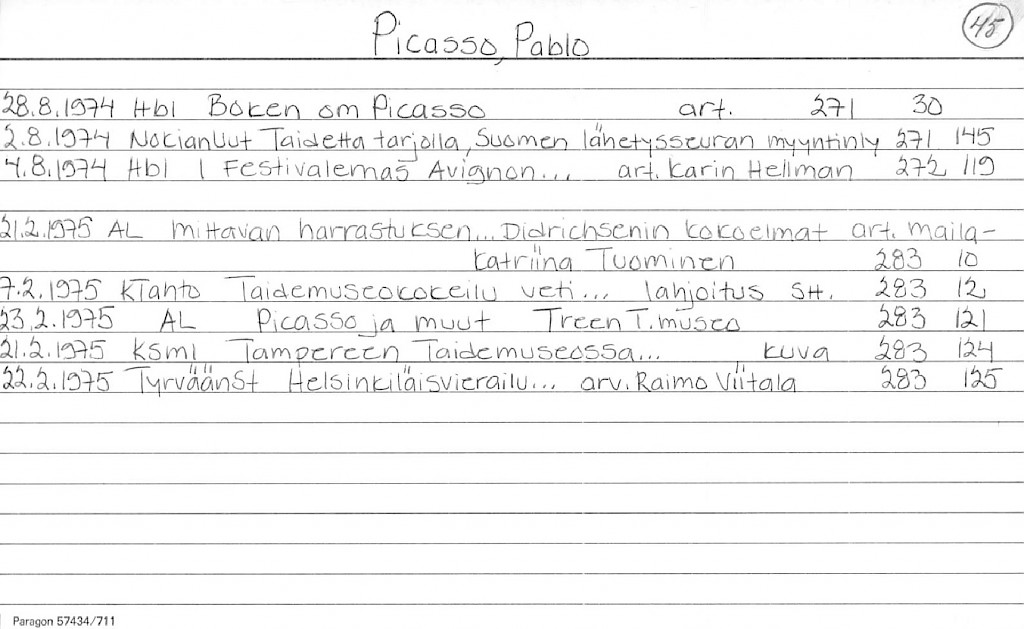 Picasso, Pablo
45
28.8.1974 Hbl Boken om Picasso art. 271 30
2.8.1974 NokianUut Taidetta tarjolla, Suomen lähetysseuran myyntinly 271 145
4.8.1974 Hbl I Festivalernas Avignon... art. Karin Hellman 272 119
21.2.1975 AL Mittavan harrastuksen... Didrichsenin kokoelmat art. Maila-
Katriina Tuominen 283 10
7.2.1975 KTahto Taidemuseokokeilu veti... lahjoitus SH. 283 12
23.2.1975 AL Picasso ja muut Treen T.museo 283 121
21.2.1975 Ksml Tampereen Taidemuseossa... kuva 283 124
22.2.1975 TyrväänSt Helsinkiläisvierailu... arv. Raimo Viitala 283 125
Paragon 57434/711